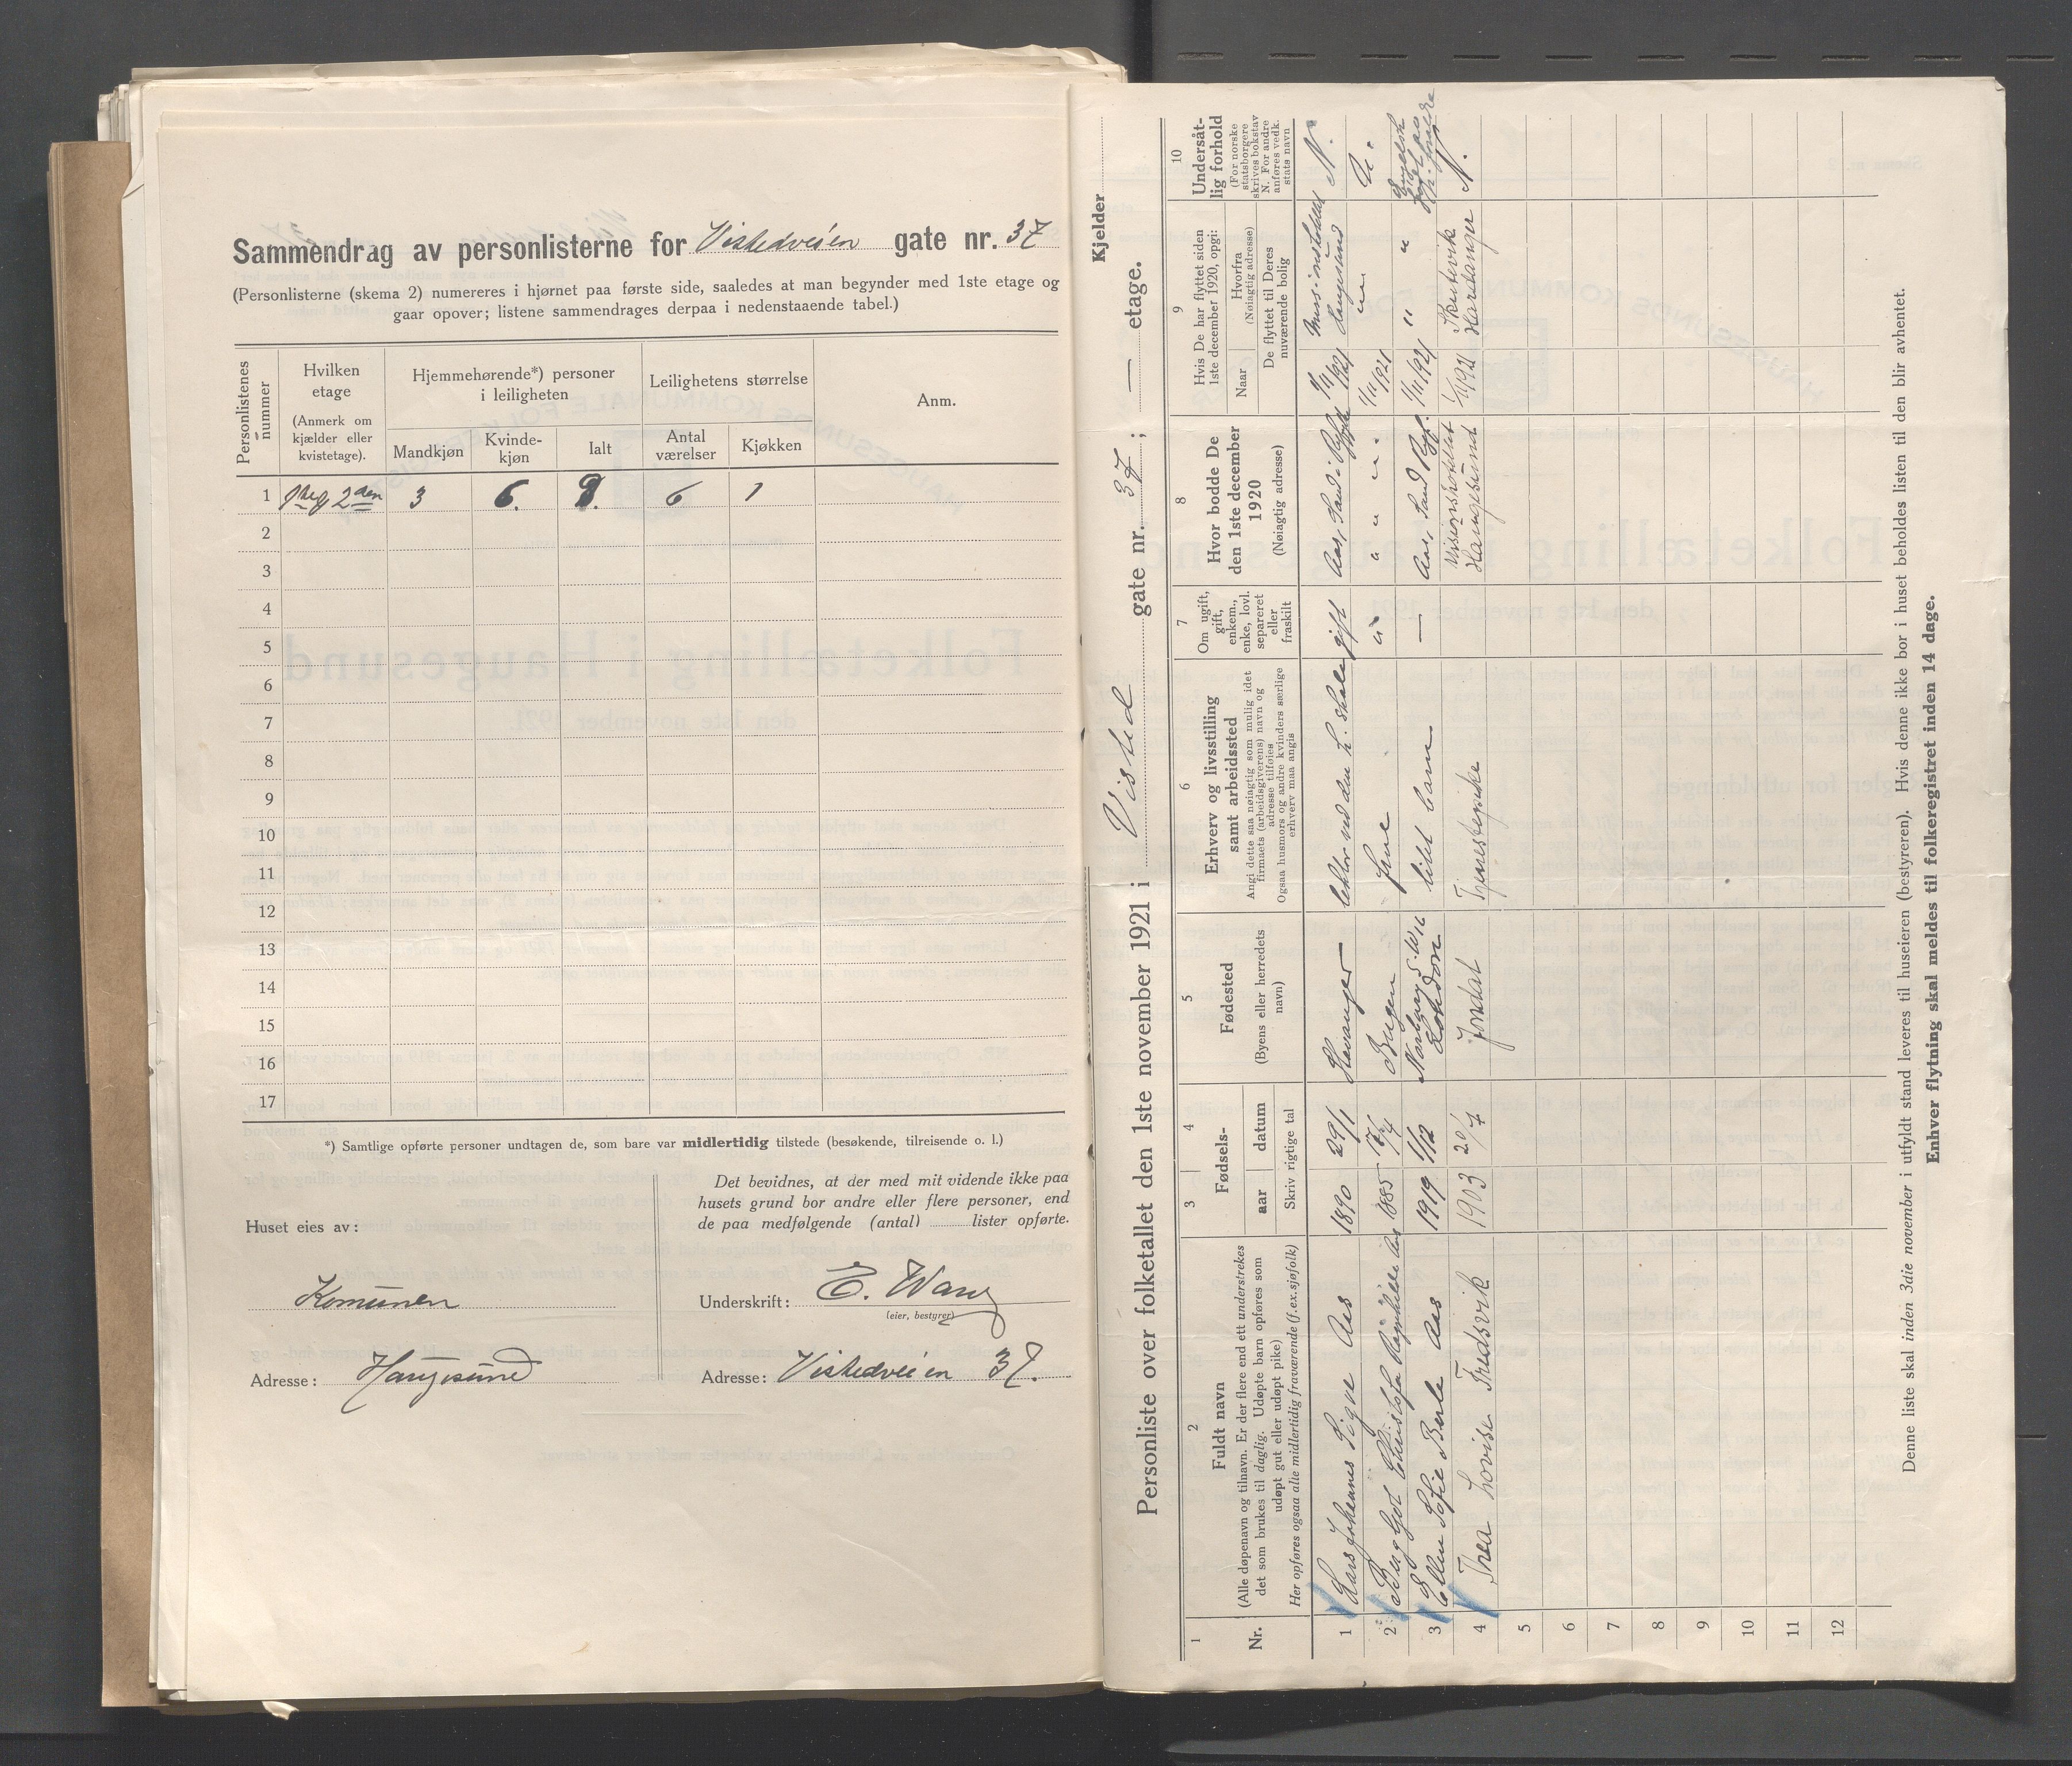 Sammendrag av personlisterne for Vistedveien gate nr. 37
(Personlisterne (skema 2) numereres i hjørnet paa første side, saaledes at man begynder med 1ste etage og
gaar opover; listene sammendrages derpaa i nedenstaaende tabel.)
Personlistenes nummer
Hvilken etage
(Anmerk om kjælder eller kvistetage).
Hjemmehørende*) personer i leiligheten
Mandkjøn
Kvinde-kjøn
Ialt
Leilighetens størrelse
Antal værelser
Kjøkken
Anm.
1 1ste og 2den 3 6. 9. 6 1
2
3
4
5
6
7
8
9
10
11
12
13
14
15
16
17
*) Samtlige opførte personer undtagen de, som bare var midlertidig tilstede (besøkende, tilreisende o. l.)
Huset eies av:
Komunen
Adresse: Haugesund
Det bevidnes, at der med mit vidende ikke paa
husets grund bor andre eller flere personer, end
de paa medfølgende (antal) lister opførte.
Underskrift: E. Wang
(eier, bestyrer)
Adresse: Vistedveien 37.
Kjelder
Personliste over folketallet den 1ste november 1921 i Visted gate nr. 37; — etage.
1
Nr.
2
Fuldt navn
(Alle døpenavn og tilnavn. Er der flere end ett understrekes
det som brukes til daglig. Udøpte barn opføres som
udøpt gut eller udøpt pike)
Her opføres ogsaa alle midlertidig fraværende (f.ex. sjøfolk)
3
4
Fødsels-
aar
datum
Skriv rigtige tal
5
Fødested
(Byens eller herredets
navn)
6
Erhverv og livsstilling
samt arbeidssted
Angi dette saa nøiagtig som mulig idet
firmaets (arbeidsgiverens) navn og
adresse tilføies
Ogsaa husmors og andre kvinders særlige
erhverv maa angis
7
Om ugift,
gift,
enkem.,
enke, lovl.
separeret
eller
fraskilt
8
Hvor bodde De
den 1ste december
1920
(Nøiagtig adresse)
9
Hvis De har flyttet siden
1ste december 1920, opgi:
Naar
Hvorfra
(Nøiagtig adresse)
De flyttet til Deres
nuværende bolig
10
Undersåt-
lig forhold
(For norske
statsborgere
skrives bokstav
N. For andre
anføres vedk.
stats navn
1 Lars Johannes Sigve Aas 1890 29/1 Stavanger lektor ved den h. skole gift Aas, Sand i Ryfylke 1/11 1921 Haugesund N.
2 Ragnhilde Aas 1885 17/4 Bergen frue " " " " " 1/11 1921 " "
3 Ellen Sofie Berle Aas 1919 1/12 Norbury S.W. 16 London litet barn — Aas, Sand Ryf. 1/11 1921 " " Engelsk
4 Thea Lovise Tredsvik 1903 20/7 Jondal Tjenestepike Misionshotellet Haugesund 1/1 1921 Skutevik Hardanger N.
5
6
7
8
9
10
11
12
Denne liste skal inden 3die november i utfyldt stand leveres til huseieren (bestyreren). Hvis denne ikke bor i huset beholdes listen til den blir avhentet.
Enhver flytning skal meldes til folkeregistret inden 14 dage.